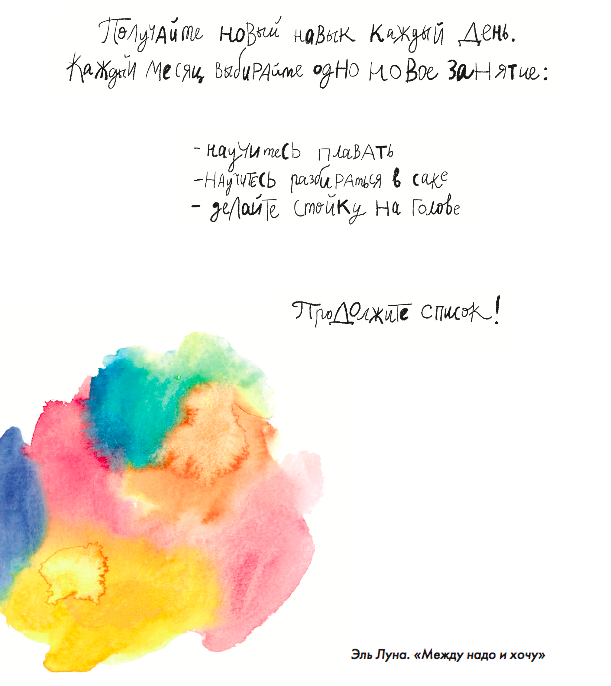 Получайте новый навык каждый день.
Каждый месяц выбирайте одно новое занятие:
- научитесь плавать
- научитесь разбираться в саке
- делайте стойку на голове
Продолжите список!
Эль Луна. «Между надо и хочу»